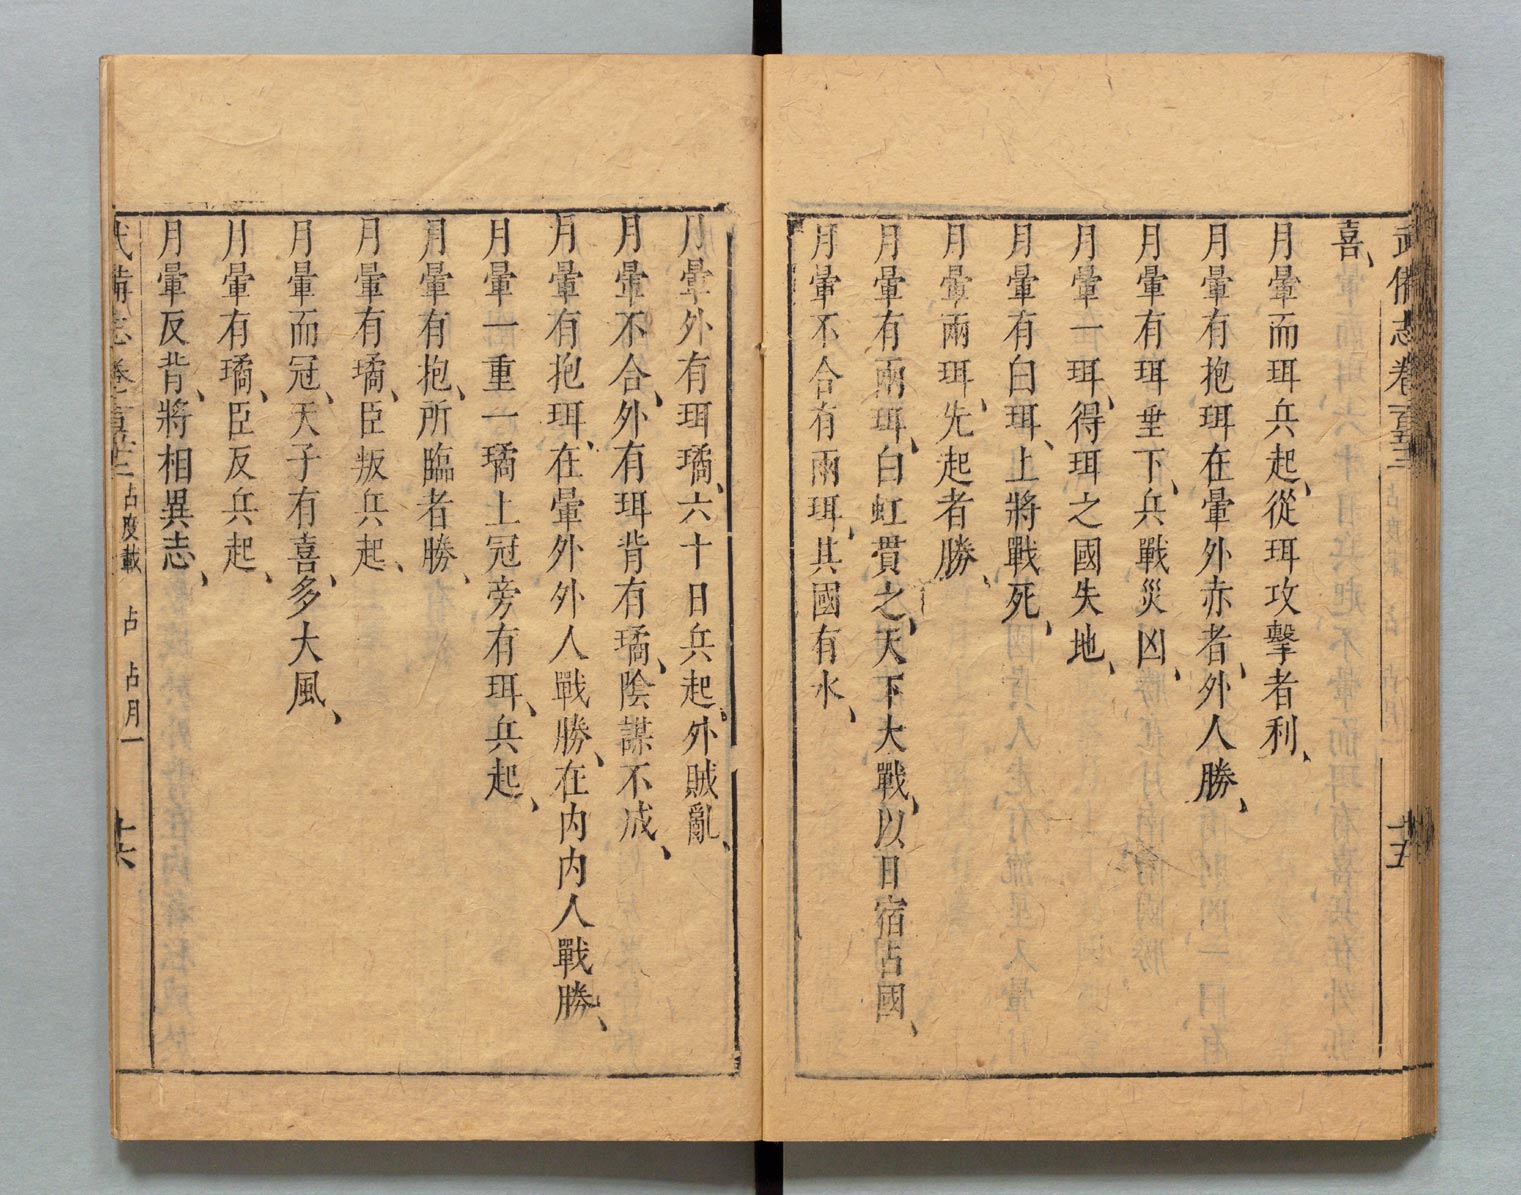 武備志卷一百五十三 占度載 占 占月一 十五
喜、
月暈而珥兵起、從珥攻擊者利、
月暈有抱珥在暈外赤者、外人勝、
月暈有珥垂下、兵戰災凶、
月暈一珥、得珥之國失地、
月暈有白珥、上將戰死、
月暈兩珥、先起者勝、
月暈有兩珥、白虹貫之、天下大戰、以日宿占國、
月暈不合有兩珥、其國有水、
月暈外有珥璚、六十日兵起、外賊亂、
月暈不合、外有珥背有璚、陰謀不成、
月暈有抱珥、在暈外外人戰勝、在內內人戰勝、
月暈一重一璚上冠旁有珥、兵起、
月暈有抱、所臨者勝、
月暈有璚、臣叛兵起、
月暈而冠、天子有喜、多大風、
月暈有璚、臣反兵起、
月暈反背、將相異志、
武備志卷一百五十三 占度載 占 占月一 十六